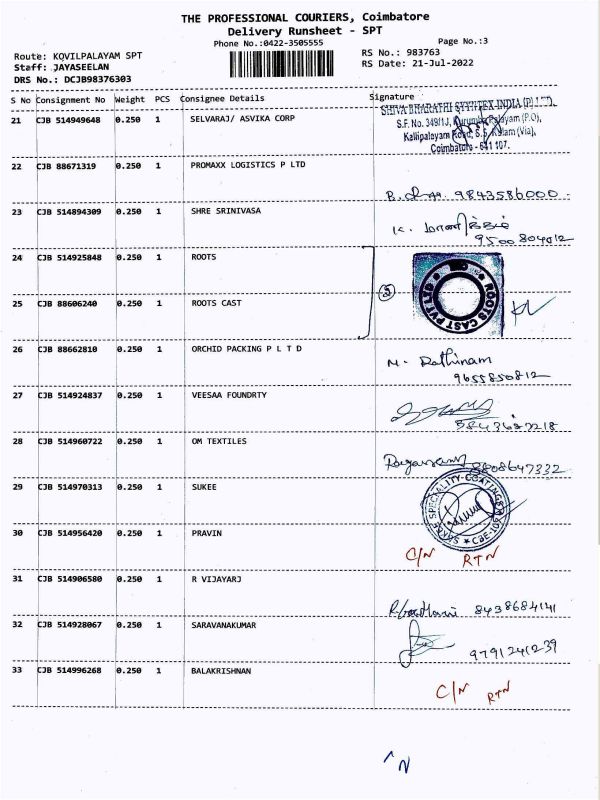 THE PROFESSIONAL COURIERS, Coimbatore
Delivery Runsheet - SPT
Phone No.:0422-3505555
Page No.:3
Route: KOVILPALAYAM SPT
RS No.: 983763
Staff: JAYASEELAN
RS Date: 21-Jul-2022
DRS No.: DCJB98376303
S No Consignment No Weight PCS Consignee Details Signature
21 CJB 514949648 0.250 1 SELVARAJ/ ASVIKA CORP
SHIVA BHARATHI SYNTEX INDIA (P) LTD.
S.F. No. 349/1J, Kurumbapalayam (P.O),
Kalipalayam Road, S.S. Kulam (Via),
Coimbatore - 641 107.
22 CJB 88671319 0.250 1 PROMAXX LOGISTICS P LTD
9843586000
23 CJB 514894309 0.250 1 SHRE SRINIVASA
9500804012
24 CJB 514925848 0.250 1 ROOTS
25 CJB 88606240 0.250 1 ROOTS CAST
5
ROOTS CAST PVT LTD
26 CJB 88662810 0.250 1 ORCHID PACKING P L T D
M. Rathinam
9655850812
27 CJB 514924837 0.250 1 VEESAA FOUNDRTY
28 CJB 514960722 0.250 1 OM TEXTILES
8808647332
29 CJB 514970313 0.250 1 SUKEE
SPECIALITY COATING
30 CJB 514956420 0.250 1 PRAVIN
C/N RTN
31 CJB 514906580 0.250 1 R VIJAYARJ
8438684141
32 CJB 514928067 0.250 1 SARAVANAKUMAR
9791241239
33 CJB 514996268 0.250 1 BALAKRISHNAN
C/N RTN